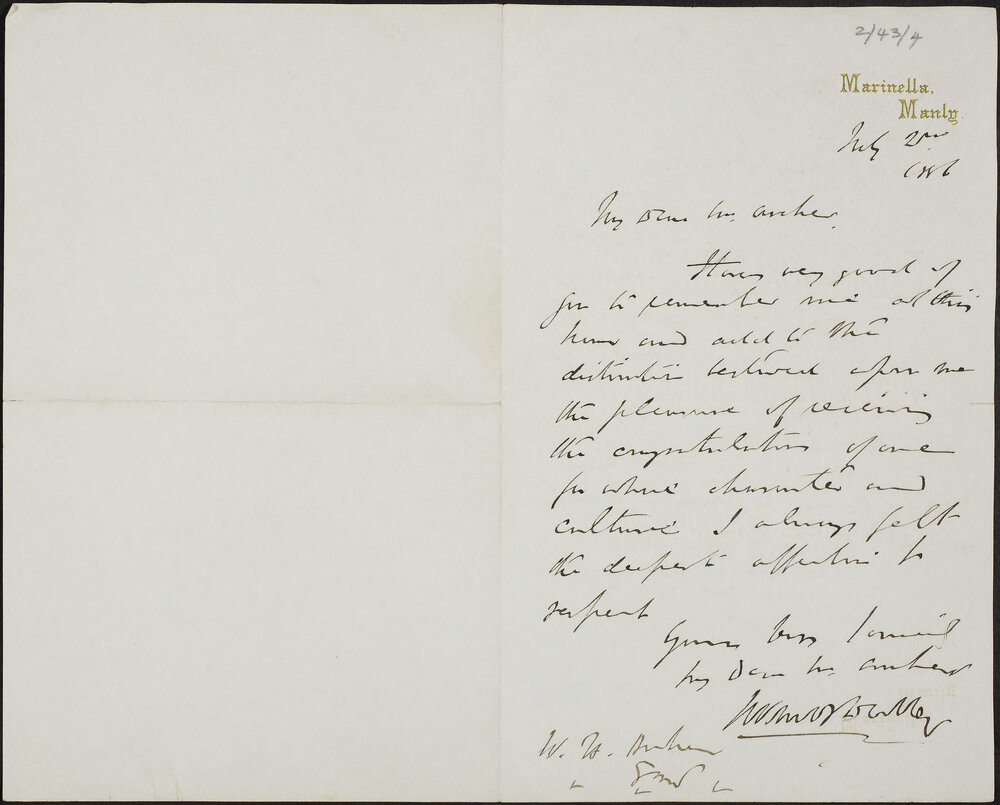 2/43/4
Marinella,
Manly.
July 2
1886
My Dear Mr. Archer,
How very good of
you to remember me at this
hour and add to the
distinction bestowed upon me
the pleasure of receiving
the congratulations of one
for whose character and
culture I always felt
the deepest affection &
respect
Yours very
my Dear Mr. Archer
W. H. Archer
" Esqr "